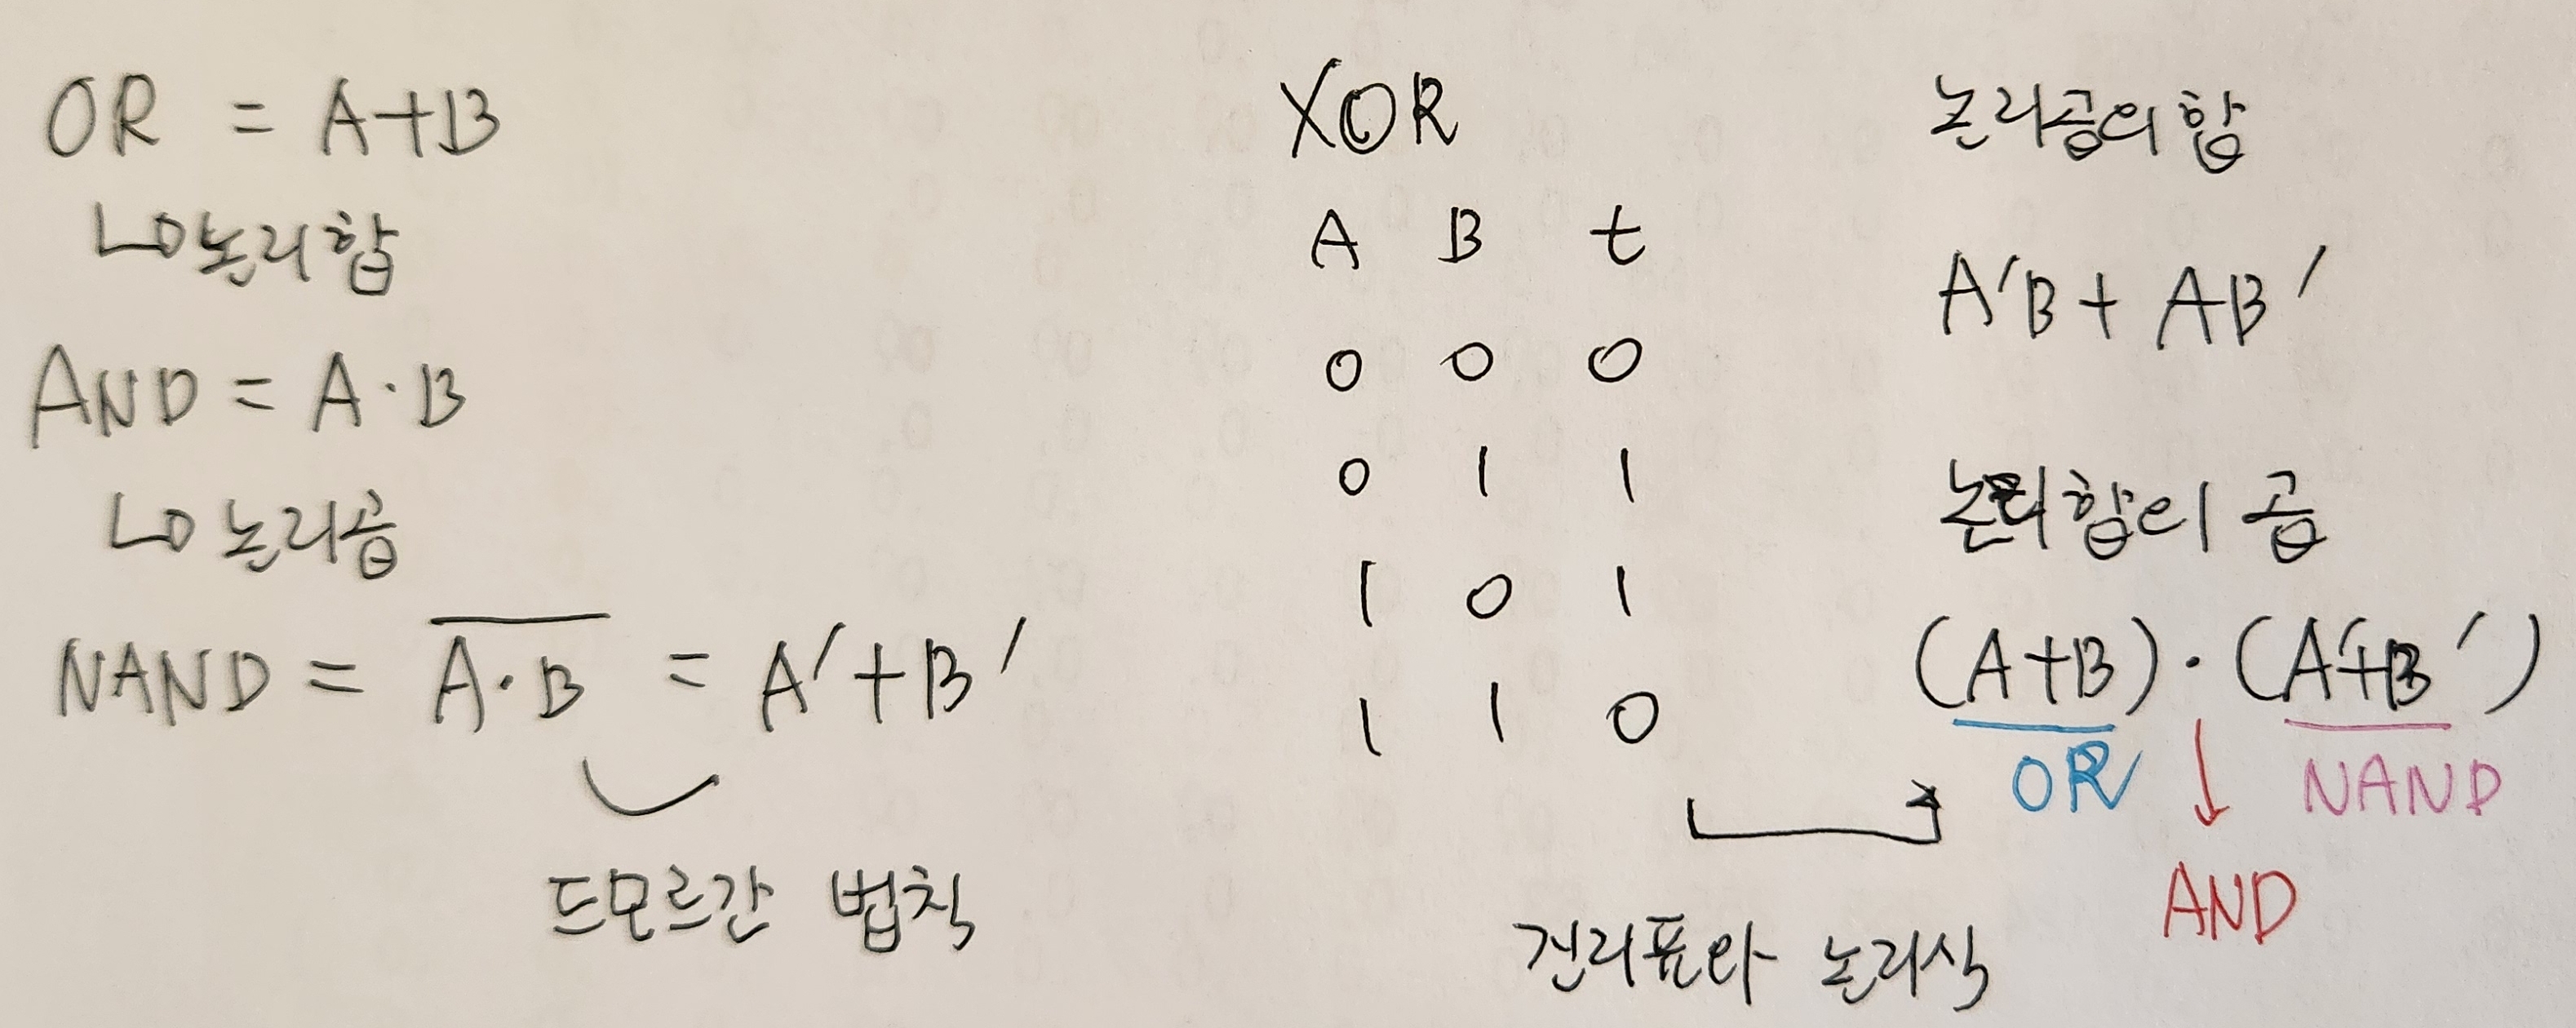 OR = A+B
ㄴㅇ논리합
AND = A·B
ㄴㅇ 논리곱
NAND = \overline{A·B} = A'+B'
드모르간 법칙
XOR
A B t
0 0 0
0 1 1
1 0 1
1 1 0
진리표와 논리식
논리곱의 합
A'B + AB'
논리합의 곱
(A+B)·(A'+B')
OR NAND
AND